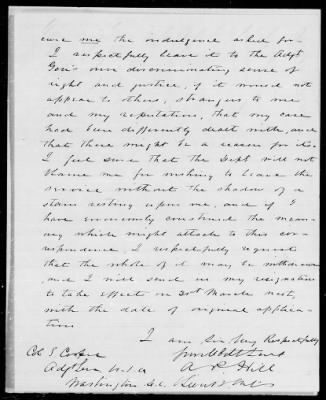 cure me the indulgence asked for
I respectfully leave it to the Adjt
Gen's own discriminating sense of
right and justice, if it would not
appear to others, strangers to me
and my reputation, that my case
had been differently dealt with, and
that there might be a reason for it.
I feel sure that the Dept will not
blame me for wishing to leave the
service without the shadow of a
stain resting upon me, and if I
have erroneously construed the mean-
ing which might attach to this cor-
respondence, I respectfully request
that the whole of it may be withdrawn
and I will send in my resignation
to take effect on March next,
with the date of original applica-
tion
I am Sir very Respectfully
Your Obdt Servt
Col S. Cooper A P Hill
Adjt Gen U.S.A
Washington